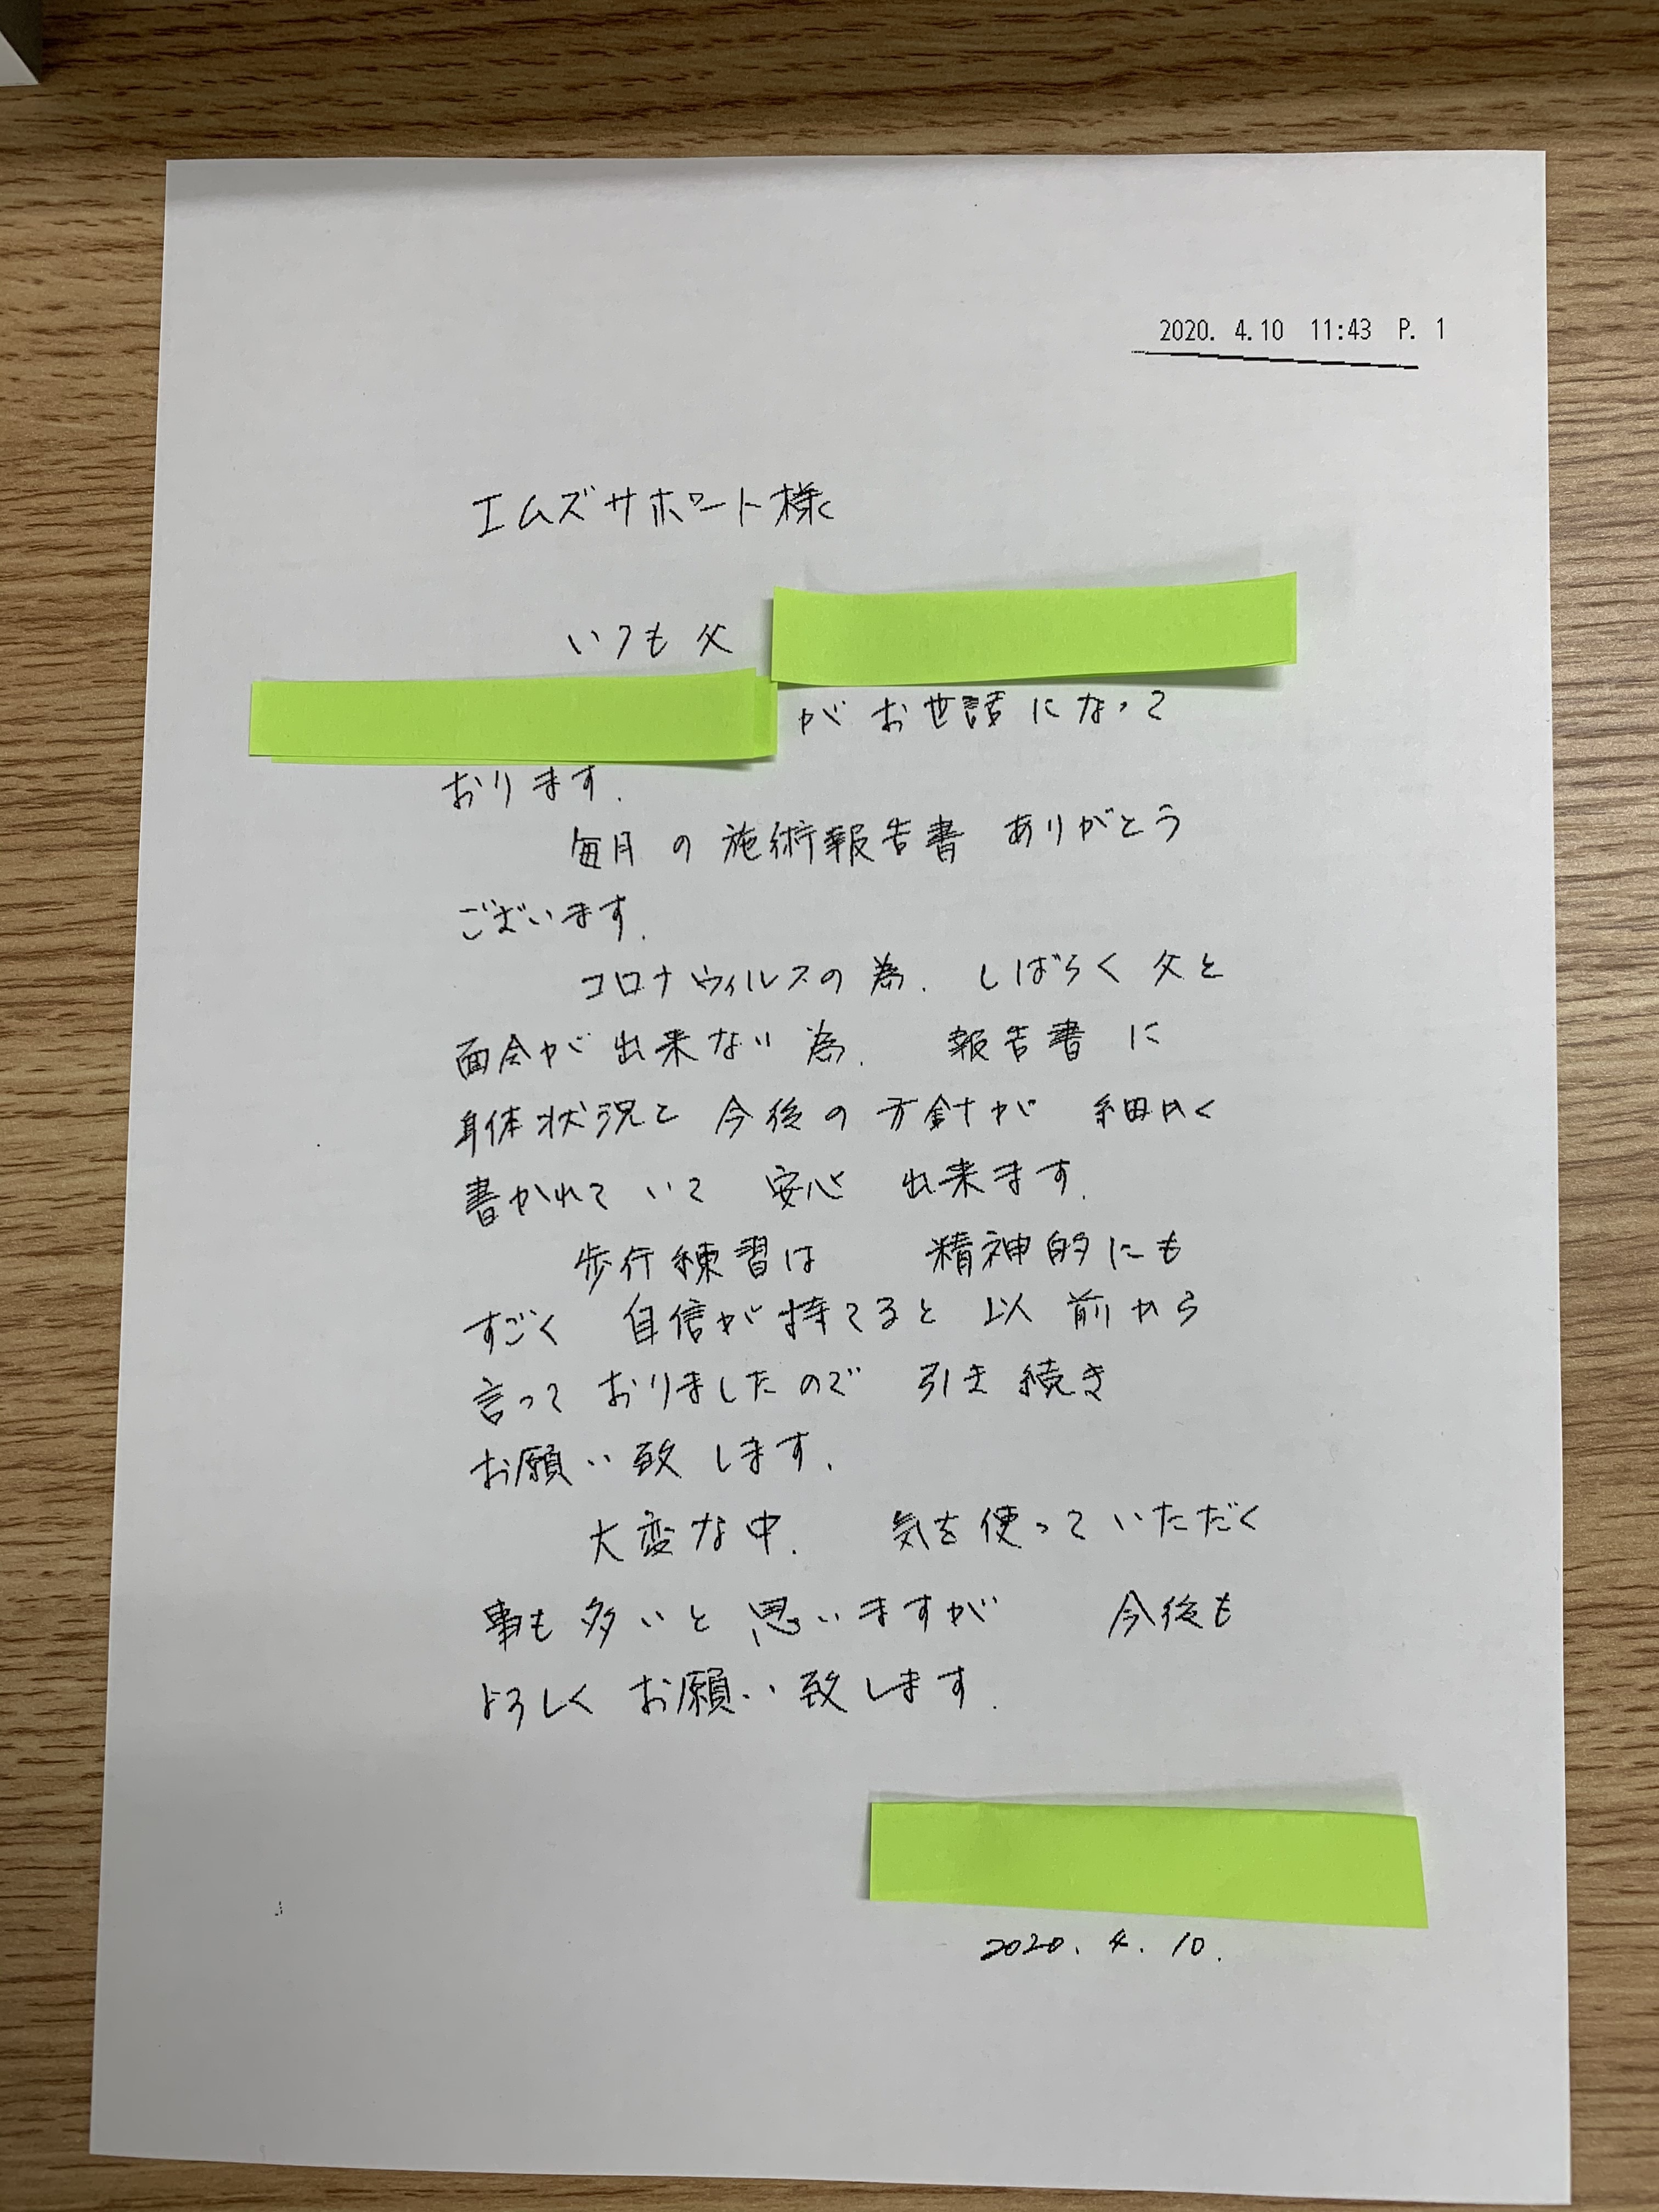 2020. 4.10 11:43 P. 1
エムズサポート様
いつも父
がお世話になって
おります.
毎月の施術報告書 ありがとう
ございます.
コロナウィルスの為. しばらく父と
面会が出来ない為. 報告書に
身体状況と今後の方針が 細かく
書かれていて 安心 出来ます.
歩行練習は 精神的にも
すごく 自信が持てると以前から
言っておりましたので 引き続き
お願い致します.
大変な中. 気を使っていただく
事も多いと思いますが 今後も
よろしくお願い致します.
2020. 4. 10.